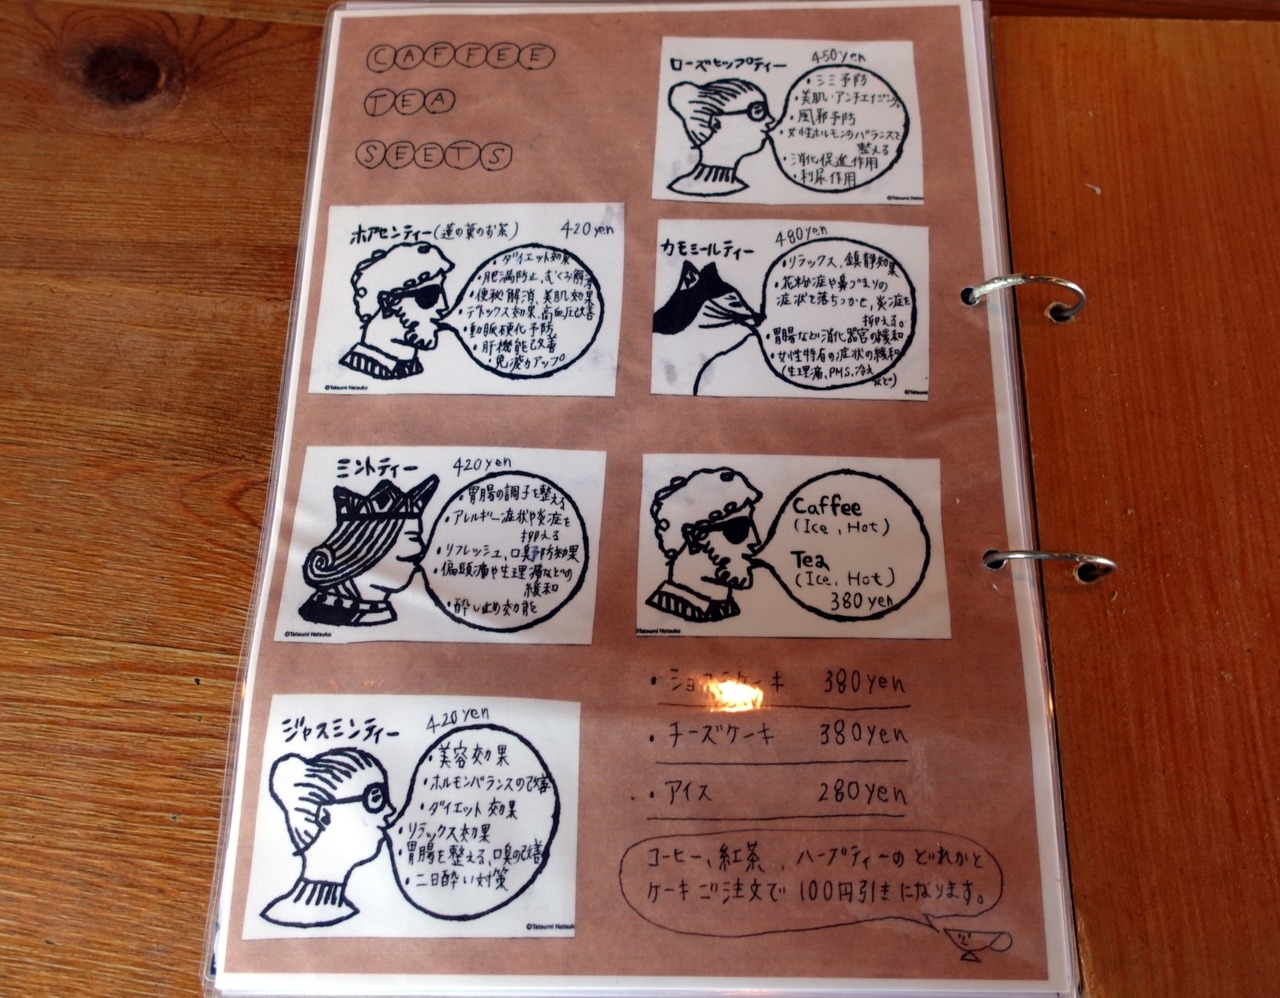 CAFFEE
TEA
SEETS
ローズヒップティー
450yen
・シミ予防
・美肌・アンチエイジング
・風邪予防
・女性ホルモンのバランスを
整える
・消化促進作用
・利尿作用
ホアセンティー(蓮の葉のお茶) 420yen
・ダイエット効果
・肥満防止、むくみ解消
・便秘解消、美肌効果
・デトックス効果、高血圧改善
・動脈硬化予防
・肝機能改善
・免疫力アップ
©Tatsumi Natsuko
カモミールティー
480yen
・リラックス、鎮静効果
・花粉症や鼻づまりの
症状を落ちつかせ、炎症を
抑える。
・胃腸など消化器官の緩和
・女性特有の症状の緩和
(生理痛、PMS、冷え
など)
ミントティー
420yen
・胃腸の調子を整える
・アレルギー症状や炎症を
抑える
・リフレッシュ、口臭予防効果
・偏頭痛や生理痛などの
緩和
・酔い止め効能
©Tatsumi Natsuko
Caffee
(Ice, Hot)
Tea
(Ice, Hot)
380yen
©Tatsumi Natsuko
ジャスミンティー
420yen
・美容効果
・ホルモンバランスの改善
・ダイエット効果
・リラックス効果
・胃腸を整える、口臭の改善
・二日酔い対策
©Tatsumi Natsuko
・ショ ケーキ 380yen
・チーズケーキ 380yen
・アイス 280yen
コーヒー、紅茶、ハーブティーのどれかと
ケーキご注文で100円引きになります。